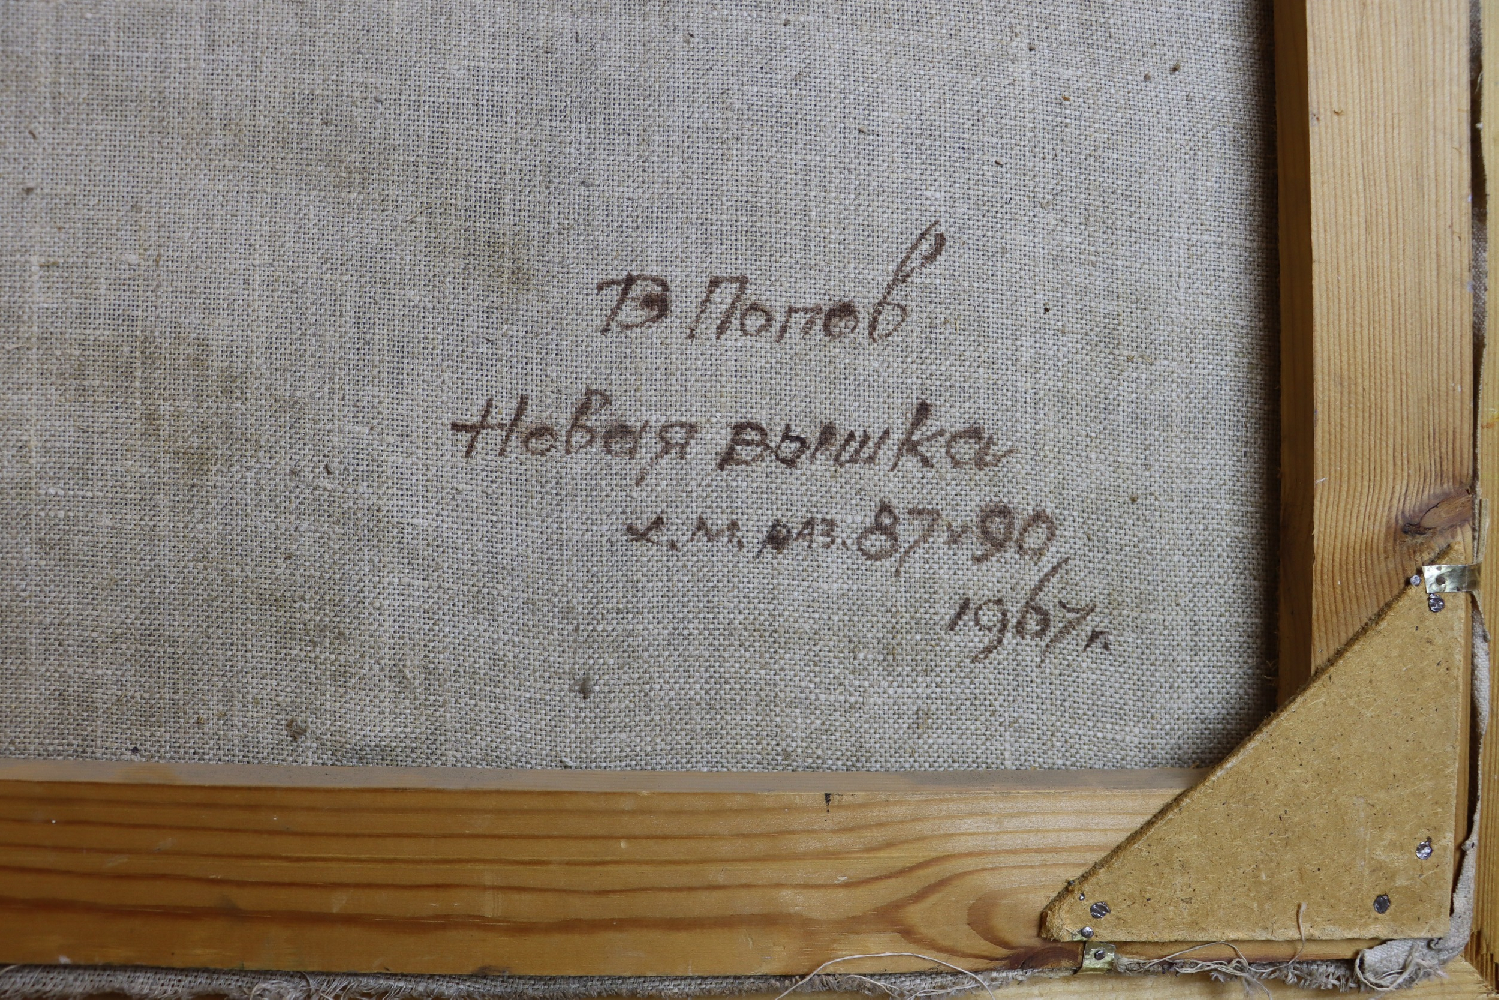 В Попов
Новая вышка
х.м. раз. 87х90
1967г.